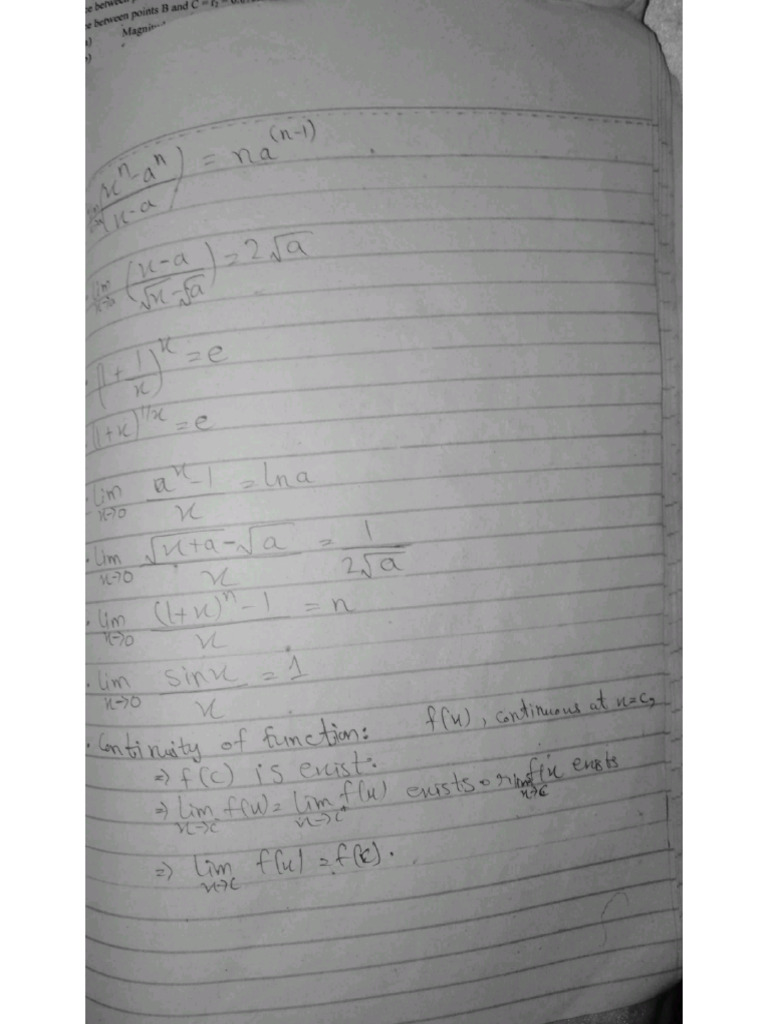 e between points B and C = r₂ =
Magni
lim (xⁿ-aⁿ / x-a) = na^(n-1)
lim x→a (x-a / √x-√a) = 2√a
(1+1/x)^x = e
(1+x)^(1/x) = e
lim x→0 a^x-1 / x = lna
lim x→0 √x+a-√a / x = 1 / 2√a
lim x→0 (1+x)ⁿ-1 / x = n
lim x→0 sinx / x = 1
Continuity of function: f(x), continuous at x=c,
⇒ f(c) is exist.
⇒ lim x→c⁻ f(x) = lim x→c⁺ f(x) exists or lim x→c f(x exists
⇒ lim x→c f(x) = f(c).